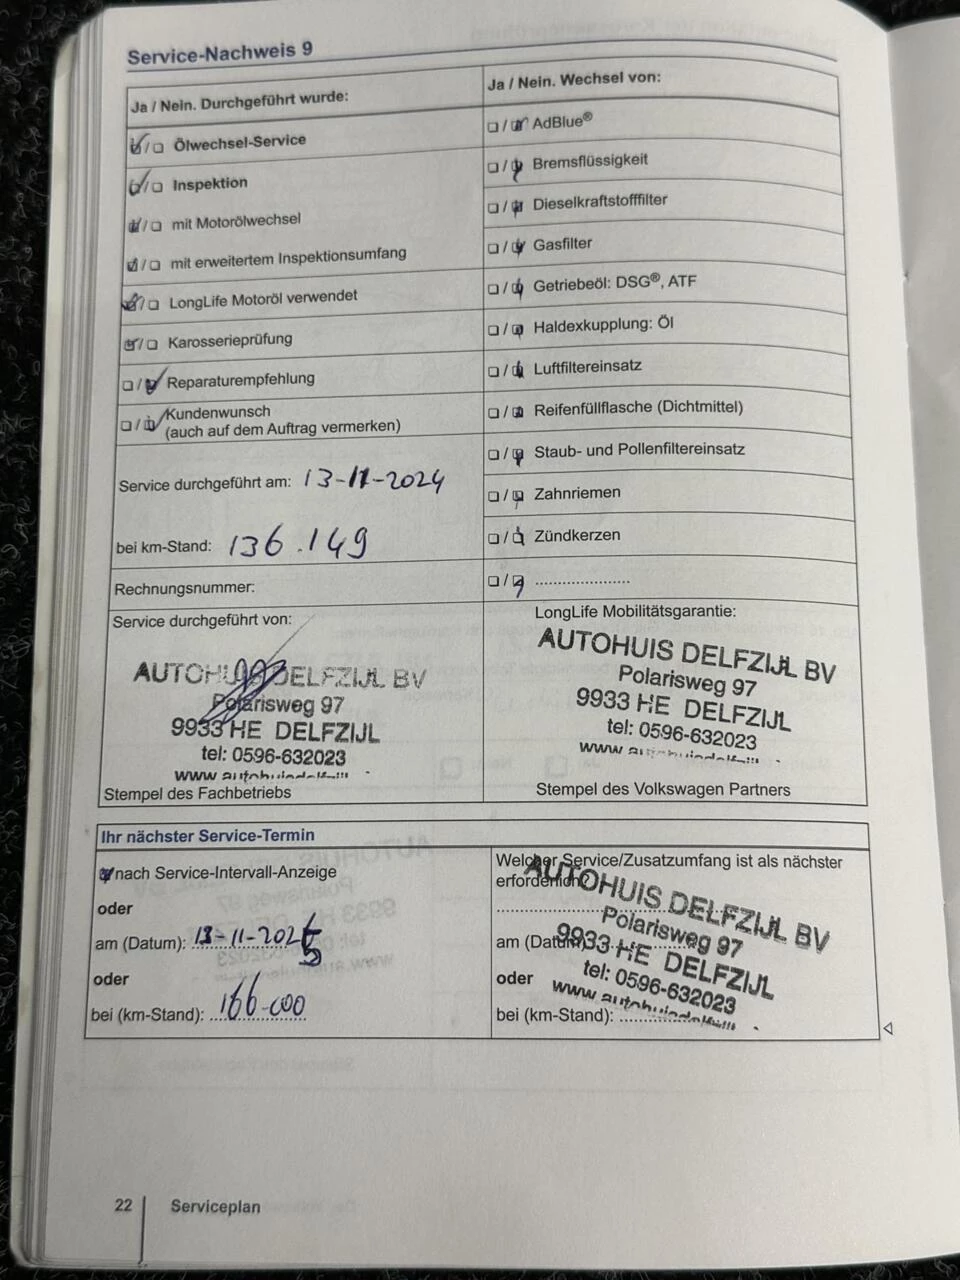 Service-Nachweis 9
Ja / Nein. Durchgeführt wurde:
Ölwechsel-Service
Inspektion
mit Motorölwechsel
mit erweitertem Inspektionsumfang
LongLife Motoröl verwendet
Karosserieprüfung
Reparaturempfehlung
Kundenwunsch
(auch auf dem Auftrag vermerken)
Service durchgeführt am: 13-11-2024
bei km-Stand: 136.149
Rechnungsnummer:
Ja / Nein. Wechsel von:
AdBlue®
Bremsflüssigkeit
Dieselkraftstofffilter
Gasfilter
Getriebeöl: DSG®, ATF
Haldexkupplung: Öl
Luftfiltereinsatz
Reifenfüllflasche (Dichtmittel)
Staub- und Pollenfiltereinsatz
Zahnriemen
Zündkerzen
......................
Service durchgeführt von:
AUTOHUIS DELFZIJL BV
Polarisweg 97
9933 HE DELFZIJL
tel: 0596-632023
Stempel des Fachbetriebs
LongLife Mobilitätsgarantie:
AUTOHUIS DELFZIJL BV
Polarisweg 97
9933 HE DELFZIJL
tel: 0596-632023
Stempel des Volkswagen Partners
Ihr nächster Service-Termin
nach Service-Intervall-Anzeige
oder
am (Datum): 13-11-2025
oder
bei (km-Stand): 166-000
Welcher Service/Zusatzumfang ist als nächster
erforderlich?
AUTOHUIS DELFZIJL BV
Polarisweg 97
am (Datum):
9933 HE DELFZIJL
oder
tel: 0596-632023
bei (km-Stand):
22 Serviceplan